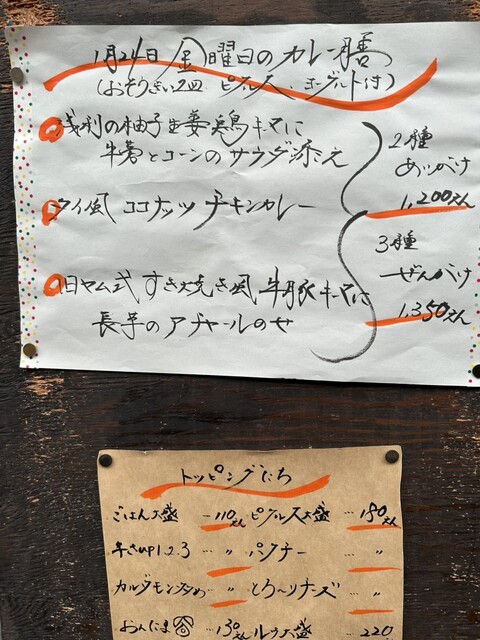 1月24日 金曜日のカレー膳
(おそうざい2皿、ピクルス、ヨーグルト付)
浅利の柚子生姜鶏キーマに
牛蒡とコーンのサラダ添え
タイ風 ココナッツチキンカレー
旧ヤム式 すき焼き風 牛豚キーマに
長芋のアチャールのせ
2種
あいがけ
1,200えん
3種
ぜんがけ
1,350えん
トッピングたち
ごはん大盛 … 110えん
ピクルス大盛 … 180えん
辛さup1.2.3 … 〃
パクチー … 〃
カルダモン … 〃
とろ〜りチーズ … 〃
おんたま … 130えん
ルウ大盛 … 220